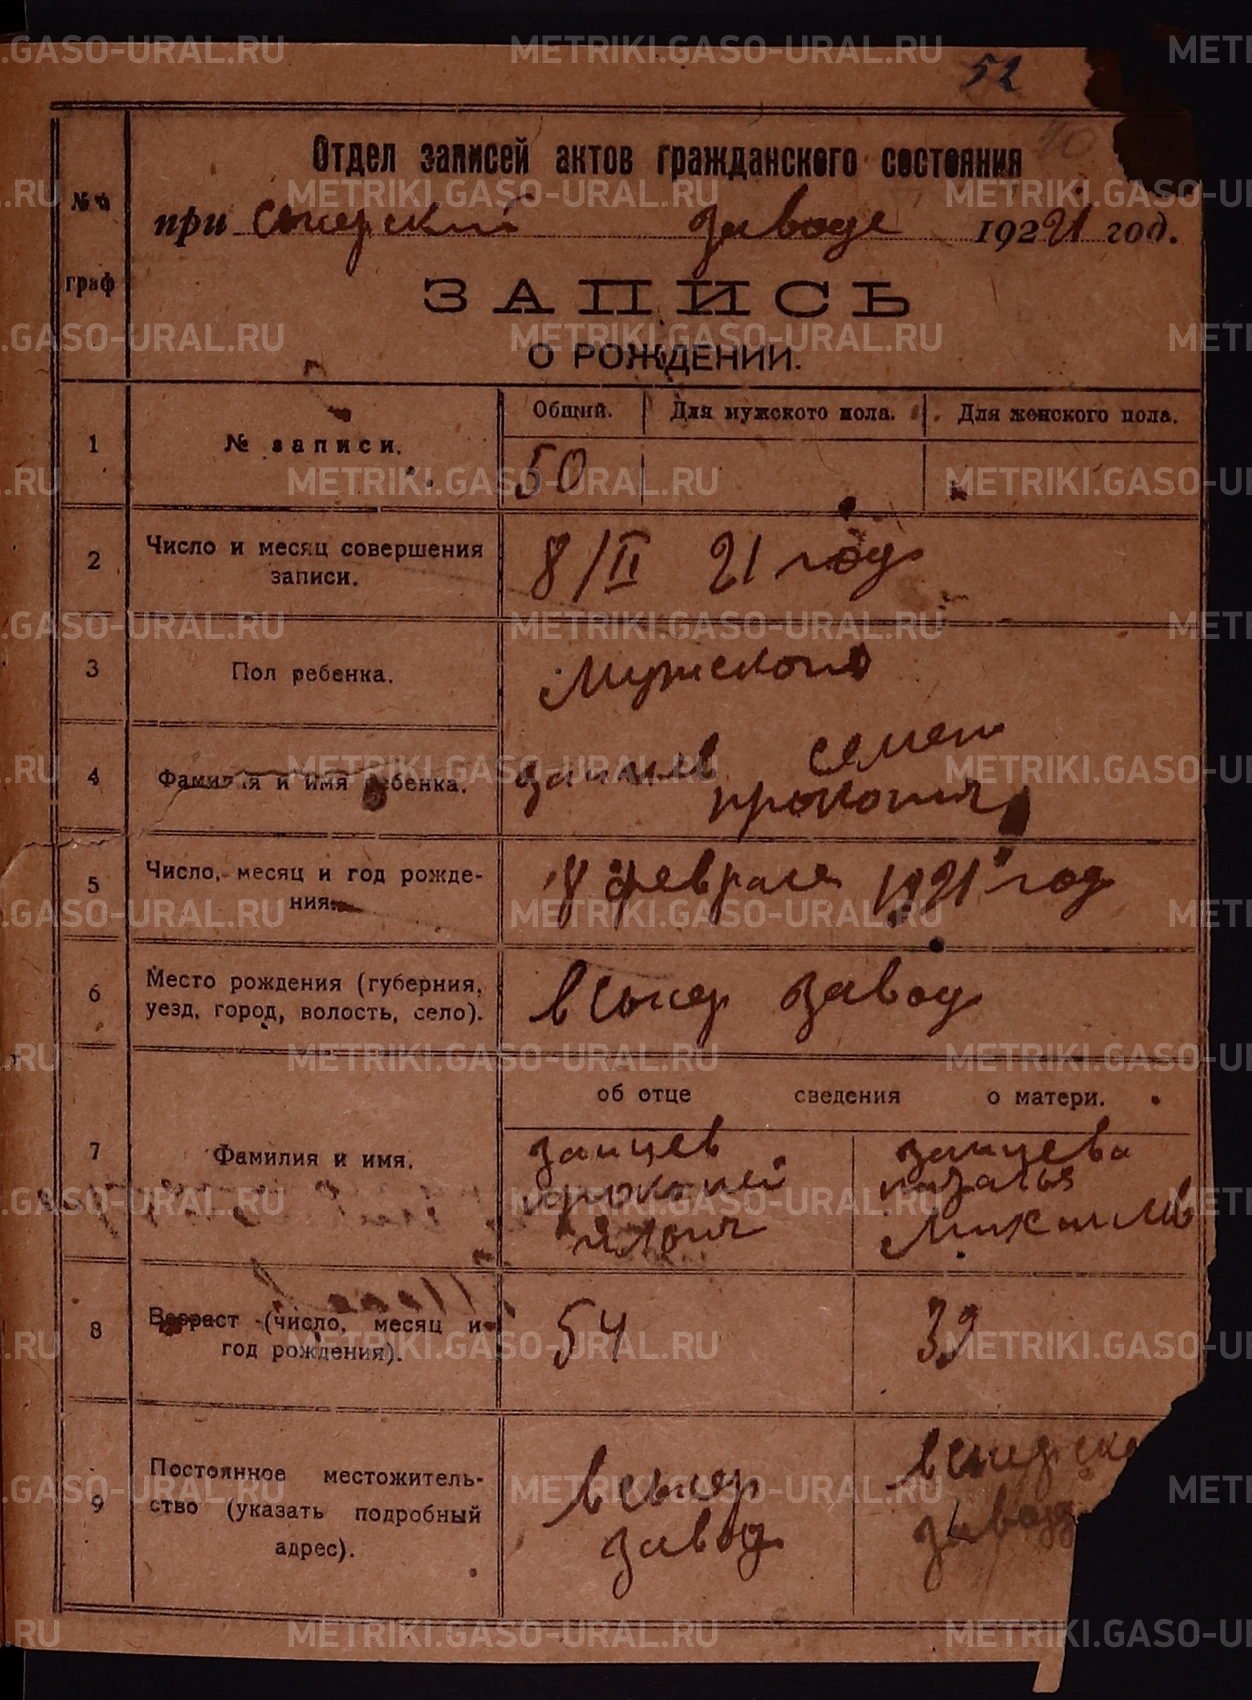 52
40
Отдел записей актов гражданского состояния
№№
граф
при Сысерский заводе 1921 год.
ЗАПИСЬ
О РОЖДЕНИИ.
Общий. Для мужского пола. Для женского пола.
1 № записи. 50
2 Число и месяц совершения
записи.
8/II 21 год
3 Пол ребенка. Мужского
4 Фамилия и имя ребенка. заицев семен
прокопич
5 Число, месяц и год рожде-
ния.
8 февраля 1921 год
6 Место рождения (губерния,
уезд, город, волость, село).
в Сысер завод
об отце сведения о матери.
7 Фамилия и имя.
заицев
прокопий
заицева
Михаилов
8 Возраст (число, месяц и
год рождения).
54 39
9 Постоянное местожитель-
ство (указать подробный
адрес).
в сысер
завод
в сысерско
завод
METRIKI.GASO-URAL.RU